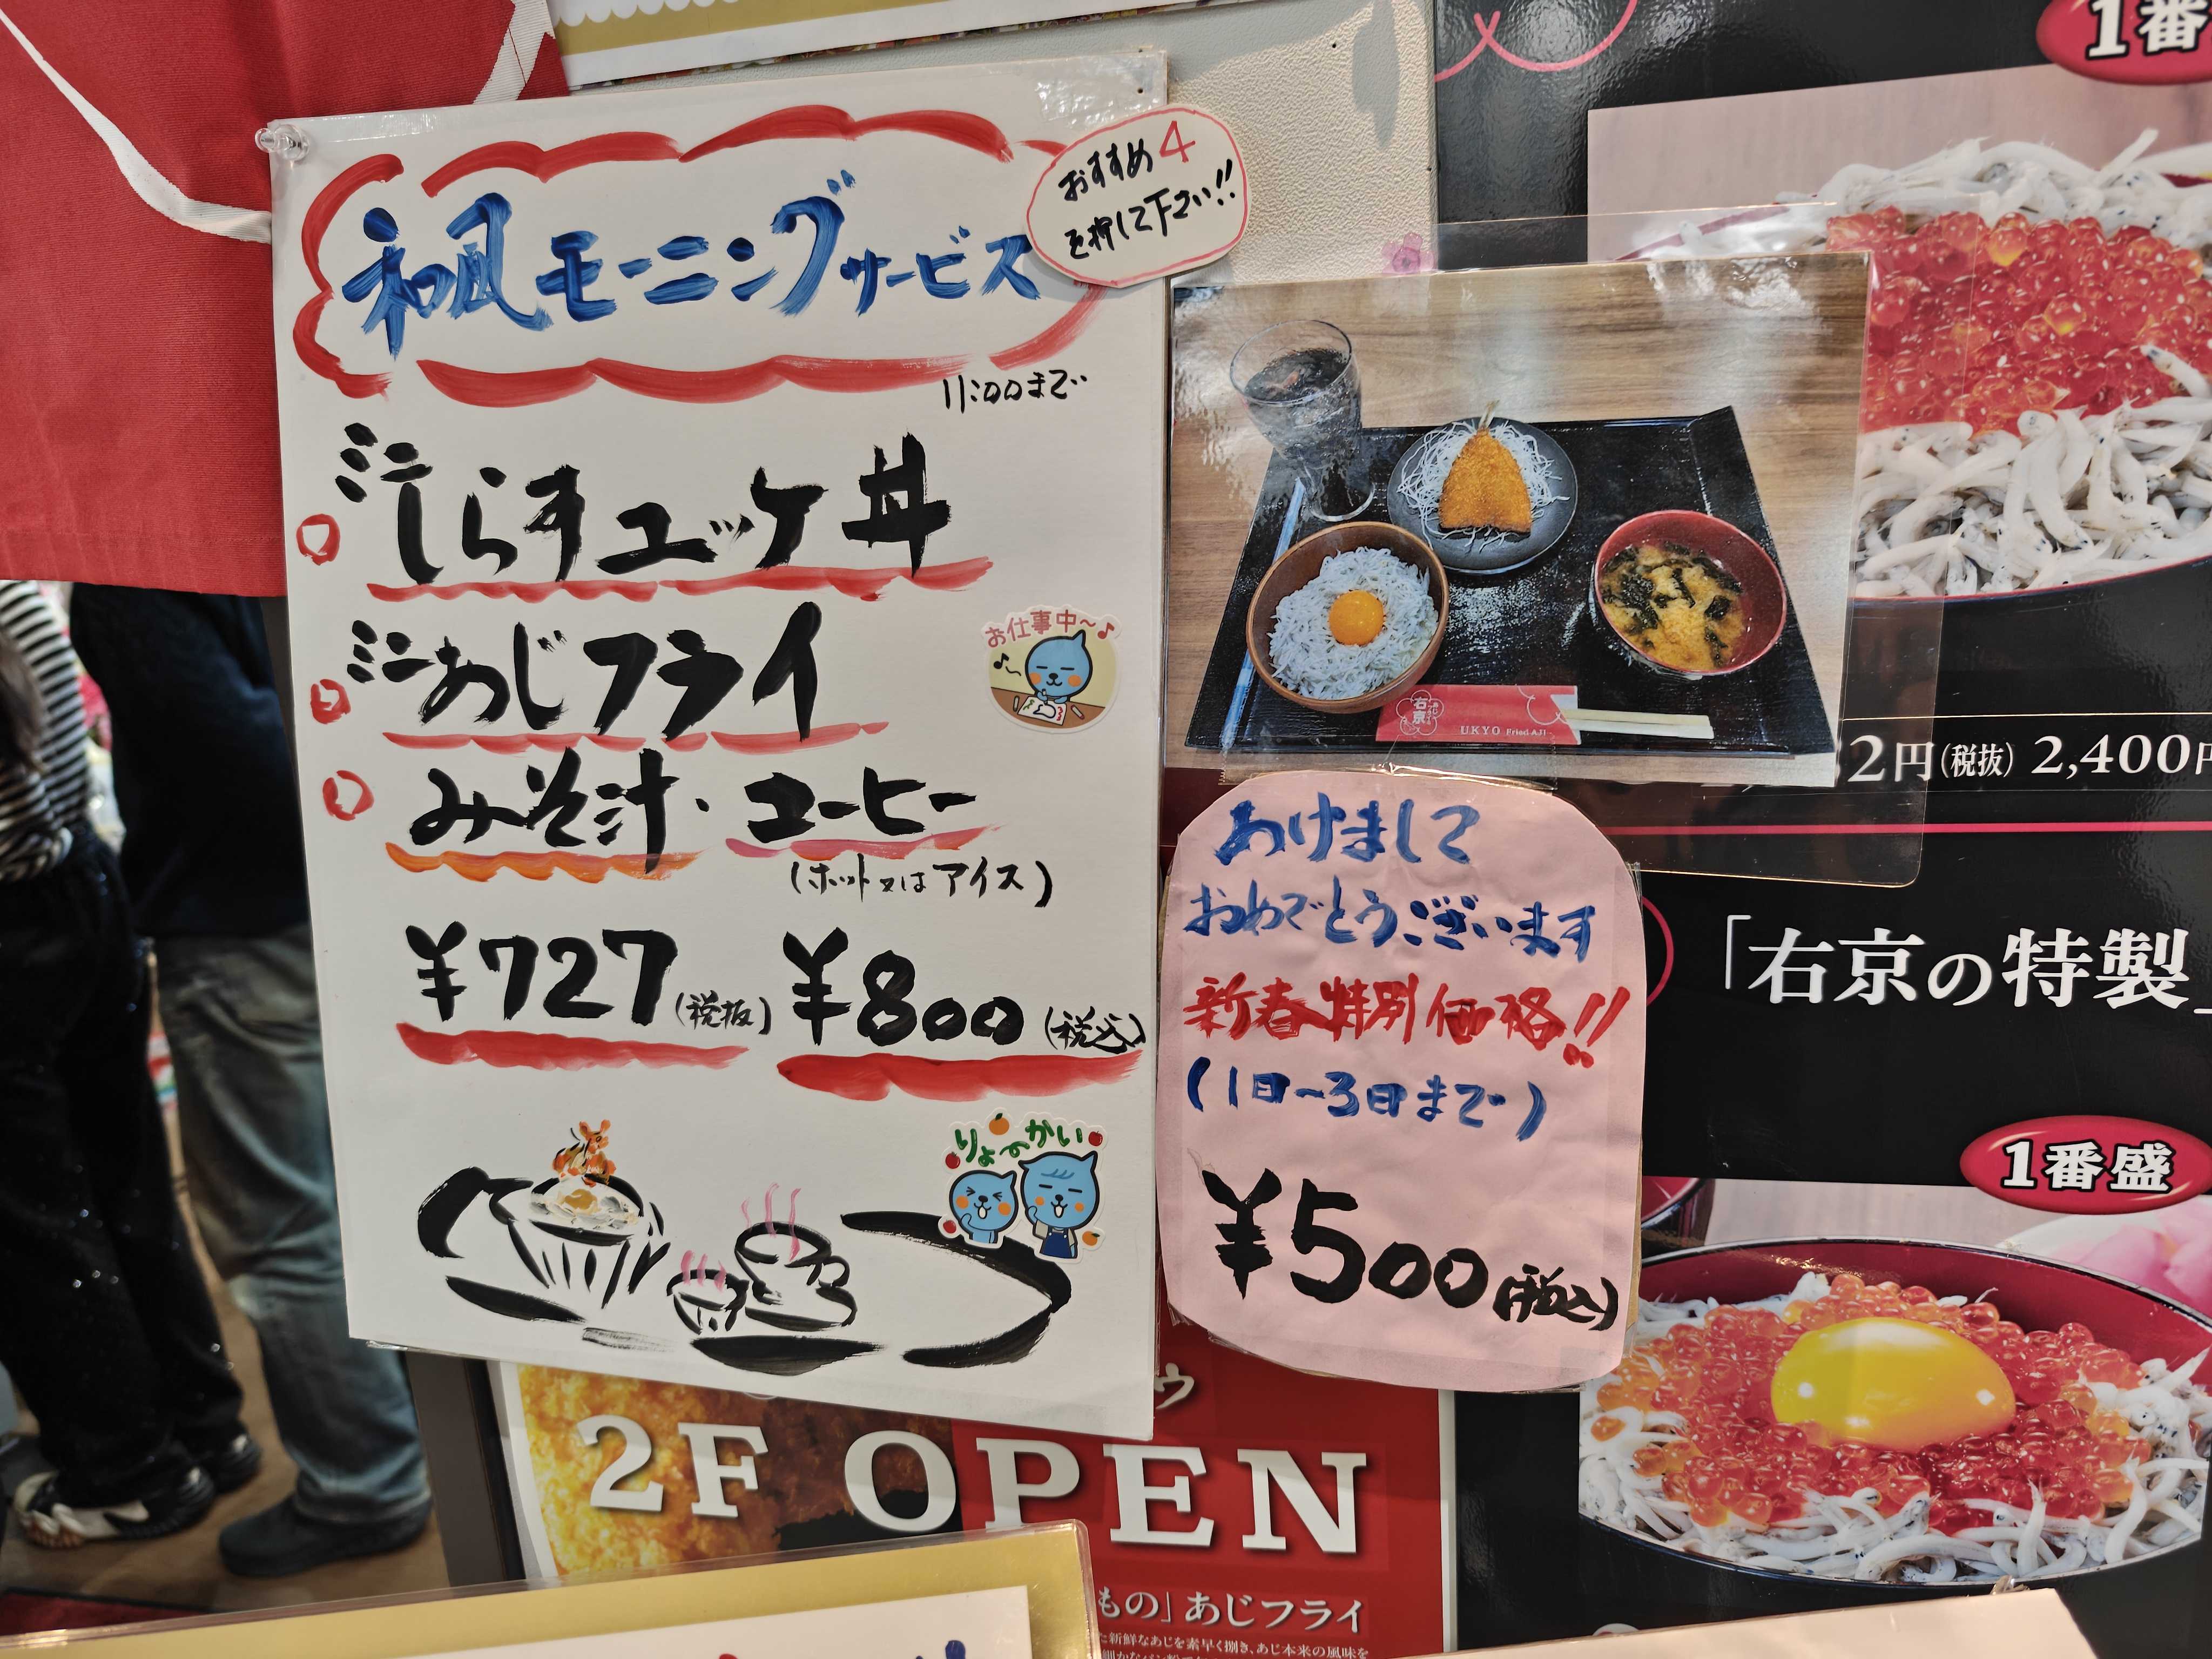 和風モーニングサービス
おすすめ4
を押して下さい!!
11:00まで
ミニ
しらすユッケ丼
ミニあじフライ
お仕事中～♪
みそ汁・コーヒー
(ホット又はアイス)
¥727(税抜) ¥800(税込)
りょーかい
右京
UKYO Fried AJI
あけまして
おめでとうございます
新春特別価格!!
(1日~3日まで)
¥500(税込)
1番
2円(税抜) 2,400円
「右京の特製」
1番盛
2F OPEN
もの」あじフライ
た新鮮なあじを素早く捌き、あじ本来の風味を